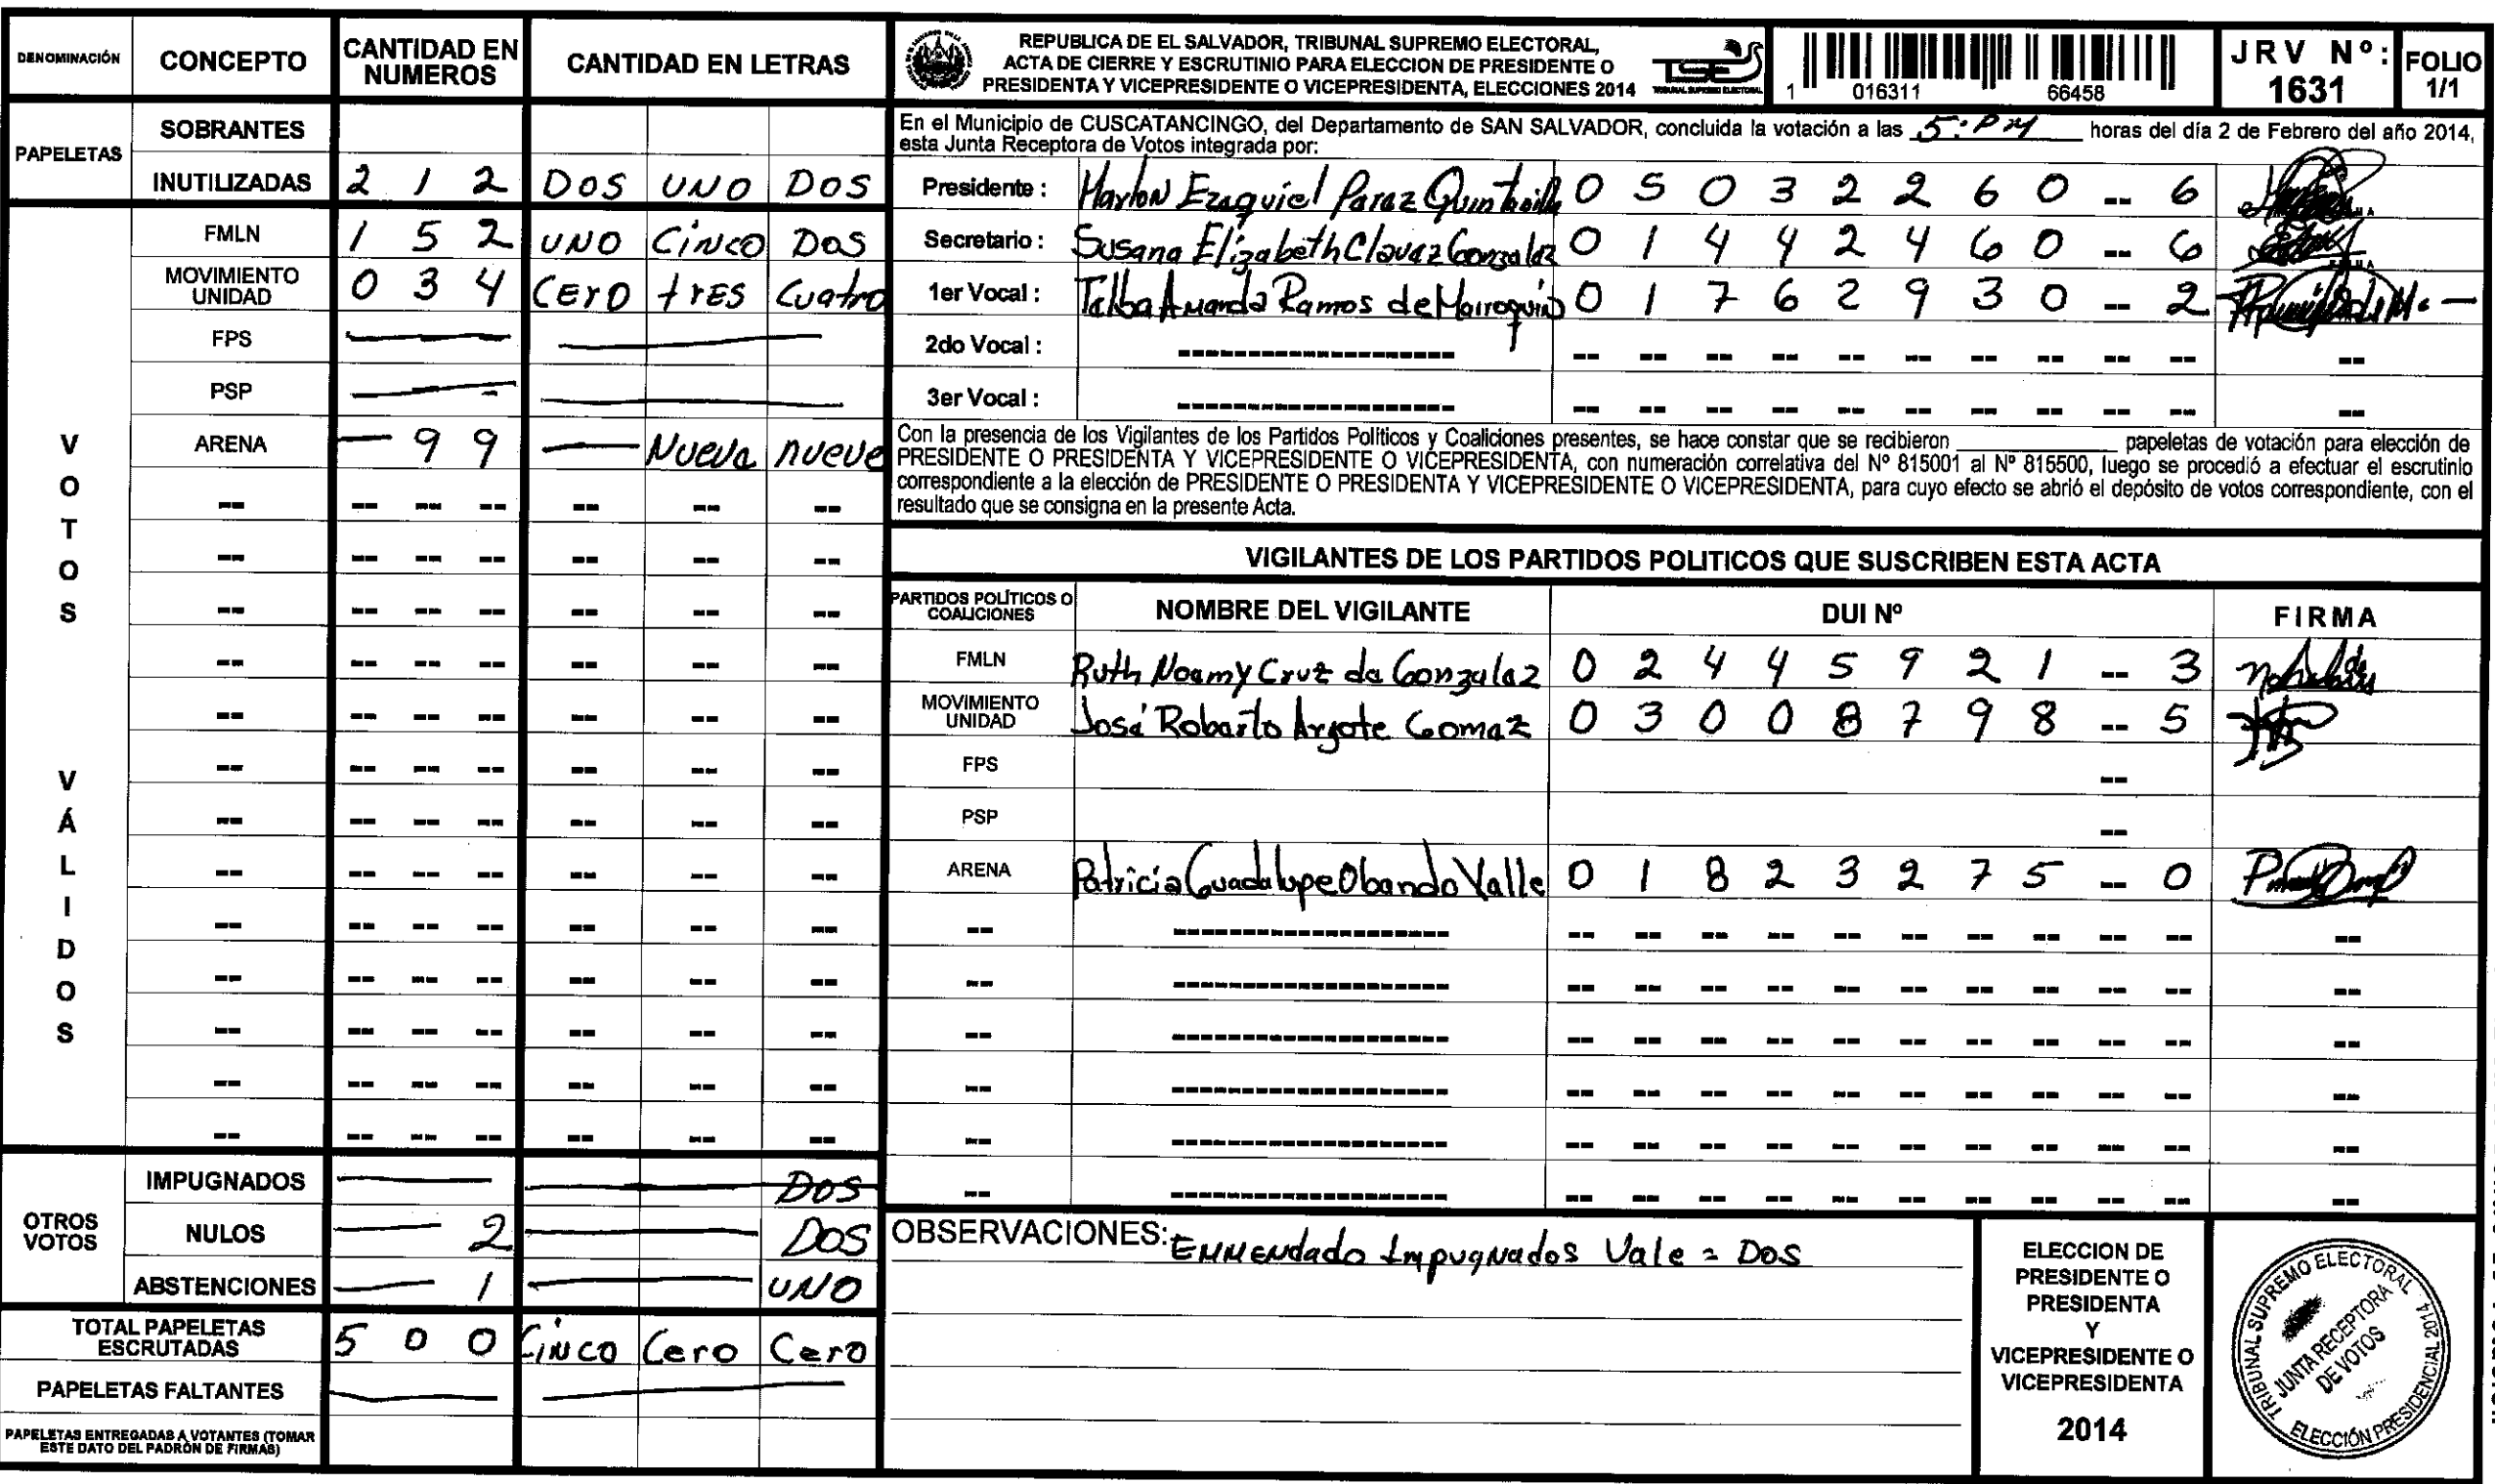 DENOMINACIÓN CONCEPTO CANTIDAD EN NUMEROS CANTIDAD EN LETRAS
PAPELETAS
SOBRANTES
INUTILIZADAS 2 1 2 DOS UNO DOS
VOTOS VÁLIDOS
FMLN 1 5 2 UNO CINCO DOS
MOVIMIENTO UNIDAD 0 3 4 CERO tRES Cuatro
FPS
PSP
ARENA — 9 9 — Nueve nueve
OTROS VOTOS
IMPUGNADOS DOS
NULOS — 2 — DOS
ABSTENCIONES — 1 — UNO
TOTAL PAPELETAS ESCRUTADAS 5 0 0 CINCO Cero Cero
PAPELETAS FALTANTES
PAPELETAS ENTREGADAS A VOTANTES (TOMAR ESTE DATO DEL PADRÓN DE FIRMAS)
REPUBLICA DE EL SALVADOR, TRIBUNAL SUPREMO ELECTORAL,
ACTA DE CIERRE Y ESCRUTINIO PARA ELECCION DE PRESIDENTE O
PRESIDENTA Y VICEPRESIDENTE O VICEPRESIDENTA, ELECCIONES 2014
TSE
TRIBUNAL SUPREMO ELECTORAL
1 016311 66458
JRV Nº: 1631
FOLIO 1/1
En el Municipio de CUSCATANCINGO, del Departamento de SAN SALVADOR, concluida la votación a las 5:PM horas del día 2 de Febrero del año 2014,
esta Junta Receptora de Votos integrada por:
Presidente : Marlon Ezequiel Perez Quintanilla 0 5 0 3 2 2 6 0 -- 6
Secretario : Susana Elizabeth Clavez Gonzalez 0 1 4 4 2 4 6 0 -- 6
1er Vocal : Amanda Ramos de Marroquin 0 1 7 6 2 9 3 0 -- 2
2do Vocal :
3er Vocal :
Con la presencia de los Vigilantes de los Partidos Políticos y Coaliciones presentes, se hace constar que se recibieron ____ papeletas de votación para elección de
PRESIDENTE O PRESIDENTA Y VICEPRESIDENTE O VICEPRESIDENTA, con numeración correlativa del Nº 815001 al Nº 815500, luego se procedió a efectuar el escrutinio
correspondiente a la elección de PRESIDENTE O PRESIDENTA Y VICEPRESIDENTE O VICEPRESIDENTA, para cuyo efecto se abrió el depósito de votos correspondiente, con el
resultado que se consigna en la presente Acta.
VIGILANTES DE LOS PARTIDOS POLITICOS QUE SUSCRIBEN ESTA ACTA
PARTIDOS POLÍTICOS O COALICIONES NOMBRE DEL VIGILANTE DUI Nº FIRMA
FMLN Ruth Noemy Cruz de Gonzalez 0 2 4 4 5 9 2 1 -- 3
MOVIMIENTO UNIDAD José Roberto Argote Gomez 0 3 0 0 8 7 9 8 -- 5
FPS --
PSP --
ARENA Patricia Guadalupe Obando Valle 0 1 8 2 3 2 7 5 -- 0
OBSERVACIONES: ENMENdado Impugnados Vale = Dos
ELECCION DE
PRESIDENTE O
PRESIDENTA
Y
VICEPRESIDENTE O
VICEPRESIDENTA
2014
TRIBUNAL SUPREMO ELECTORAL 2014
JUNTA RECEPTORA
DE VOTOS
ELECCIÓN PRESIDENCIAL